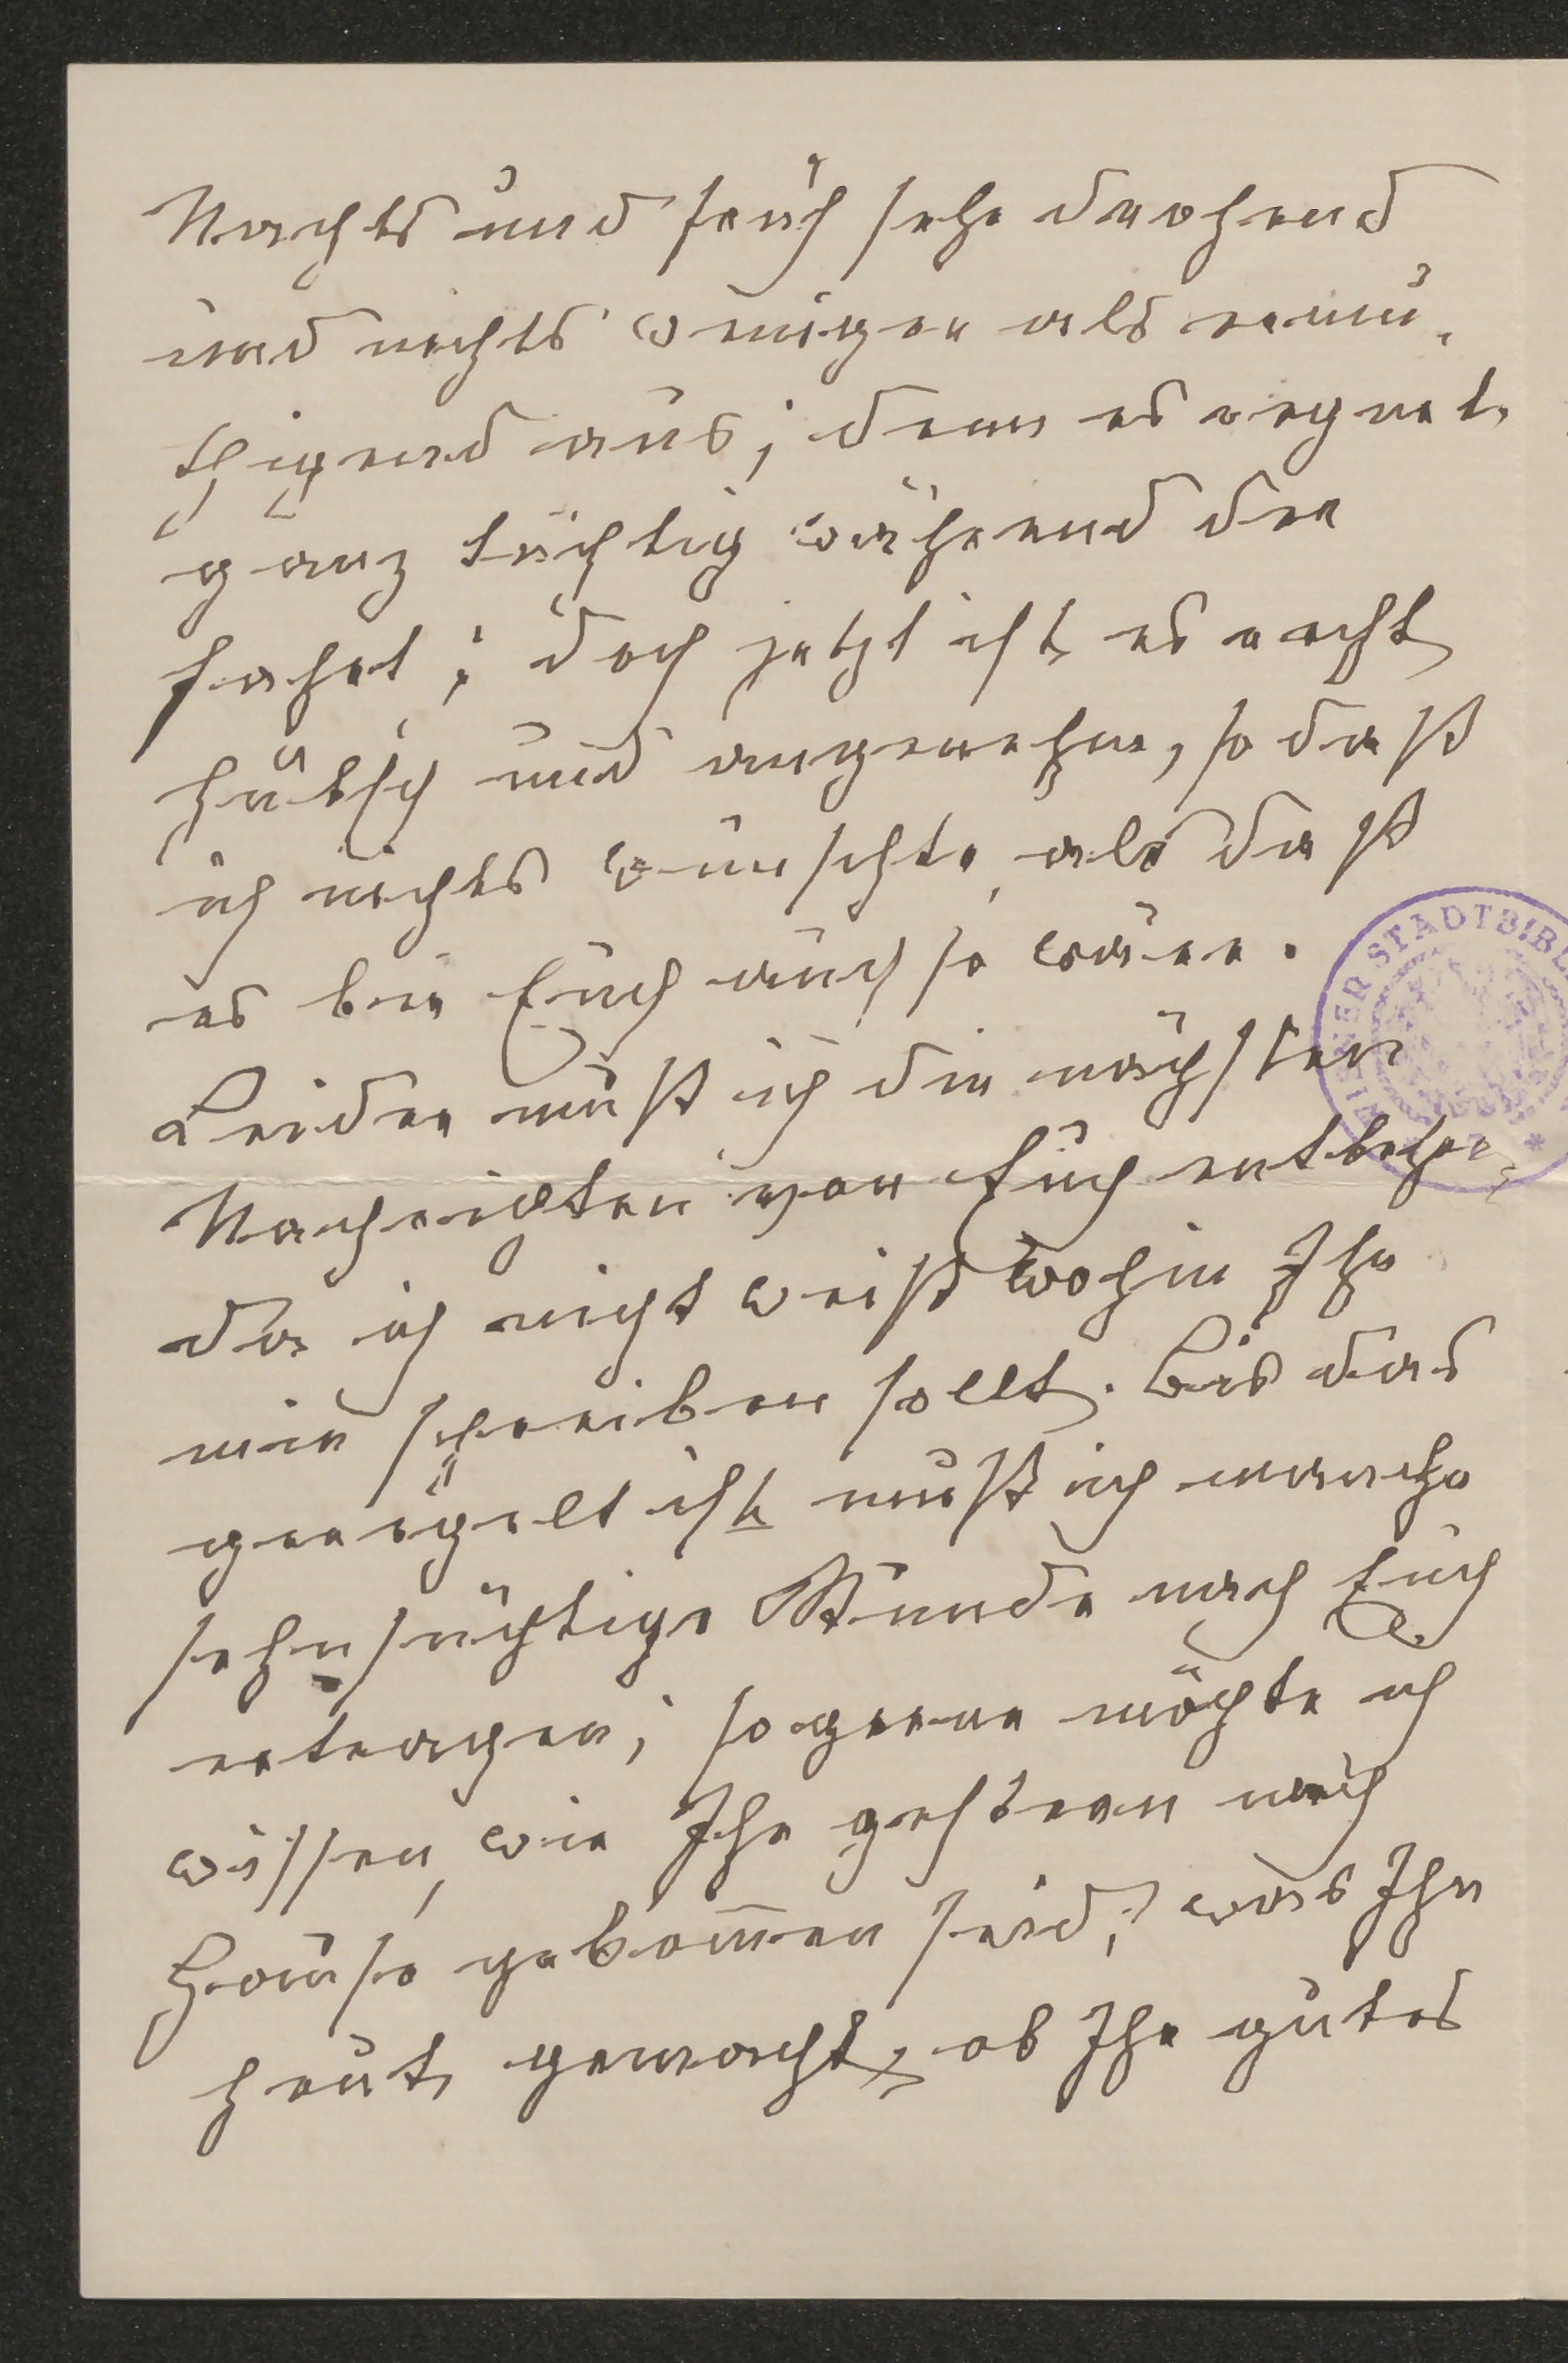 Nachts und früh sehr drohend
und nichts weniger als ermu-
thigend aus; denn es regnete
ganz tüchtig während der
Fahrt; doch jetzt ist es recht
hübsch und angenehm, so daß
ich nichts wünschte, als daß
es bei Euch auch so wäre.
Leider muß ich die nächsten
Nachrichten von Euch entbehren,
da ich nicht weiß wohin Ihr
mir schreiben sollt. Bis das
geregelt ist muß ich manche
sehnsüchtige Stunde nach Euch
ertragen; so gerne möchte ich
wissen, wie Ihr gestern nach
Hause gekom̄en seid, was Ihr
heute gemacht, ob Ihr gutes
WIENER STADTBIBL